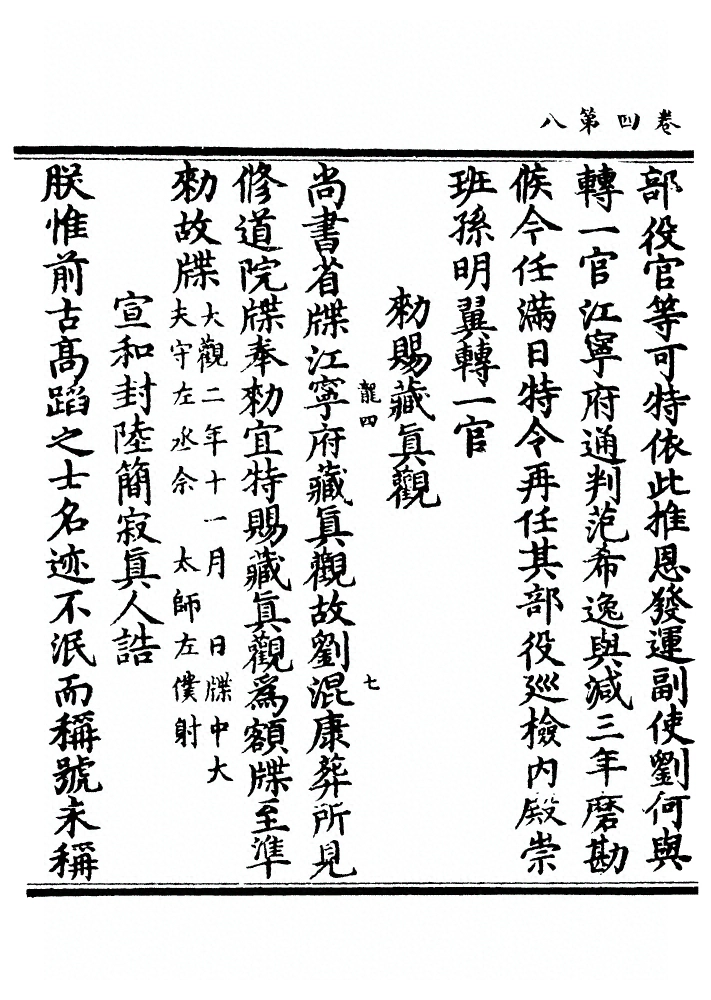 卷四第八
部役官等可特依此推恩發運副使劉何與
轉一官江寧府通判范希逸與減三年磨勘
候今任滿日特令再任其部役廵檢內殿崇
班孫明翼轉一官
勑賜藏眞觀
龍四
七
尚書省牒江寧府藏眞觀故劉混康葬所見
修道院牒奉勑宜特賜藏眞觀爲額牒至準
勑故牒
大觀二年十一月 日牒中大
夫守左丞佘 太師左僕射
宣和封陸簡寂眞人誥
朕惟前古高蹈之士名迹不泯而稱號未稱